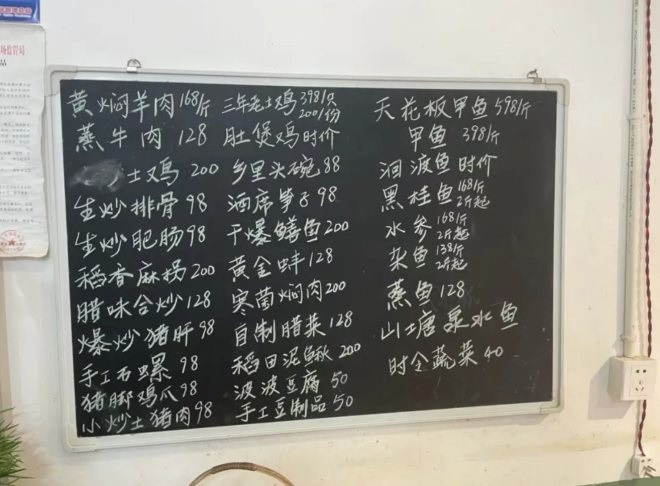 黄焖羊肉168/斤
蒸牛肉 128
土叉鸡 200
生炒排骨 98
生炒肥肠 98
稻香麻拐 200
腊味合炒 128
爆炒猪肝 98
手工石螺 98
猪脚鸡爪 98
小炒土猪肉 98
三年老土鸡 398/只 200/份
肚煲鸡 时价
乡里头碗 88
酒席笋子 98
干爆鳝鱼 200
黄金蚌 128
寒菌焖肉 200
自制腊菜 128
稻田泥鳅 200
波波豆腐 50
手工豆制品 50
天花板甲鱼 598/斤
甲鱼 398/斤
洄波鱼 时价
黑桂鱼 168/斤 2斤起
水参 168/斤 2斤起
杂鱼 138/斤 2斤起
蒸鱼 128
山塘泉水鱼
时令蔬菜 40